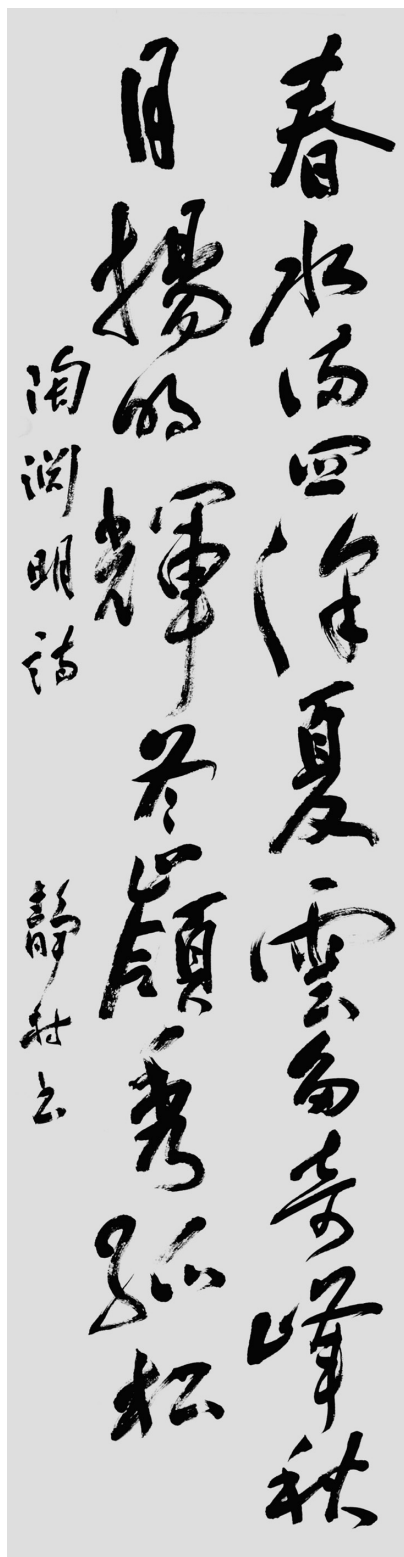 春水満四澤夏雲多奇峰秋
月揚明輝冬嶺秀孤松
陶淵明詩 静村书